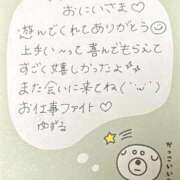 おにいさま♡
遊んでくれてありがとう☺
上手い〜って喜んでもらえて
すごく嬉しかったよ♪♪
また会いに来てね(˙ᵕ˙)
お仕事ファイト♡
ゆずる
かっこいい